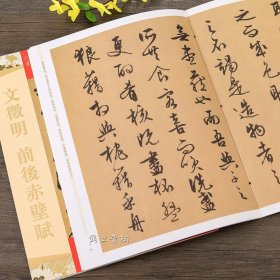 之不竭是造物
無盡藏也而吾與子之
所共食客喜而笑洗盞
更酌肴核既盡杯盤
狼藉相與枕藉乎舟
文徵明 前後赤壁賦